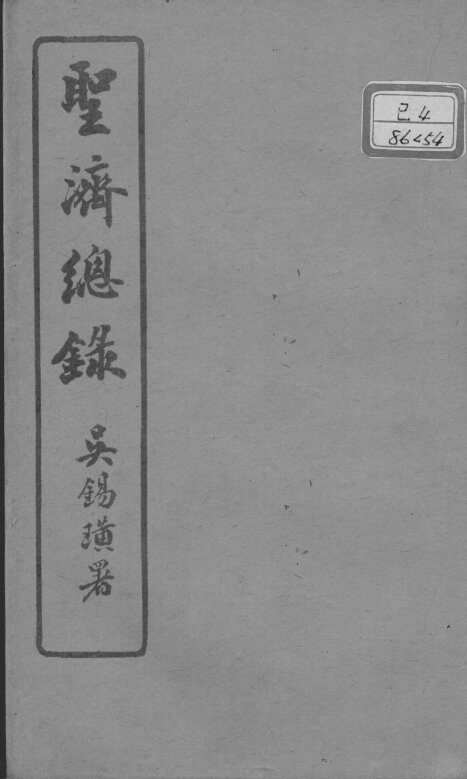 聖濟總錄
吳錫璜署
己4
86254